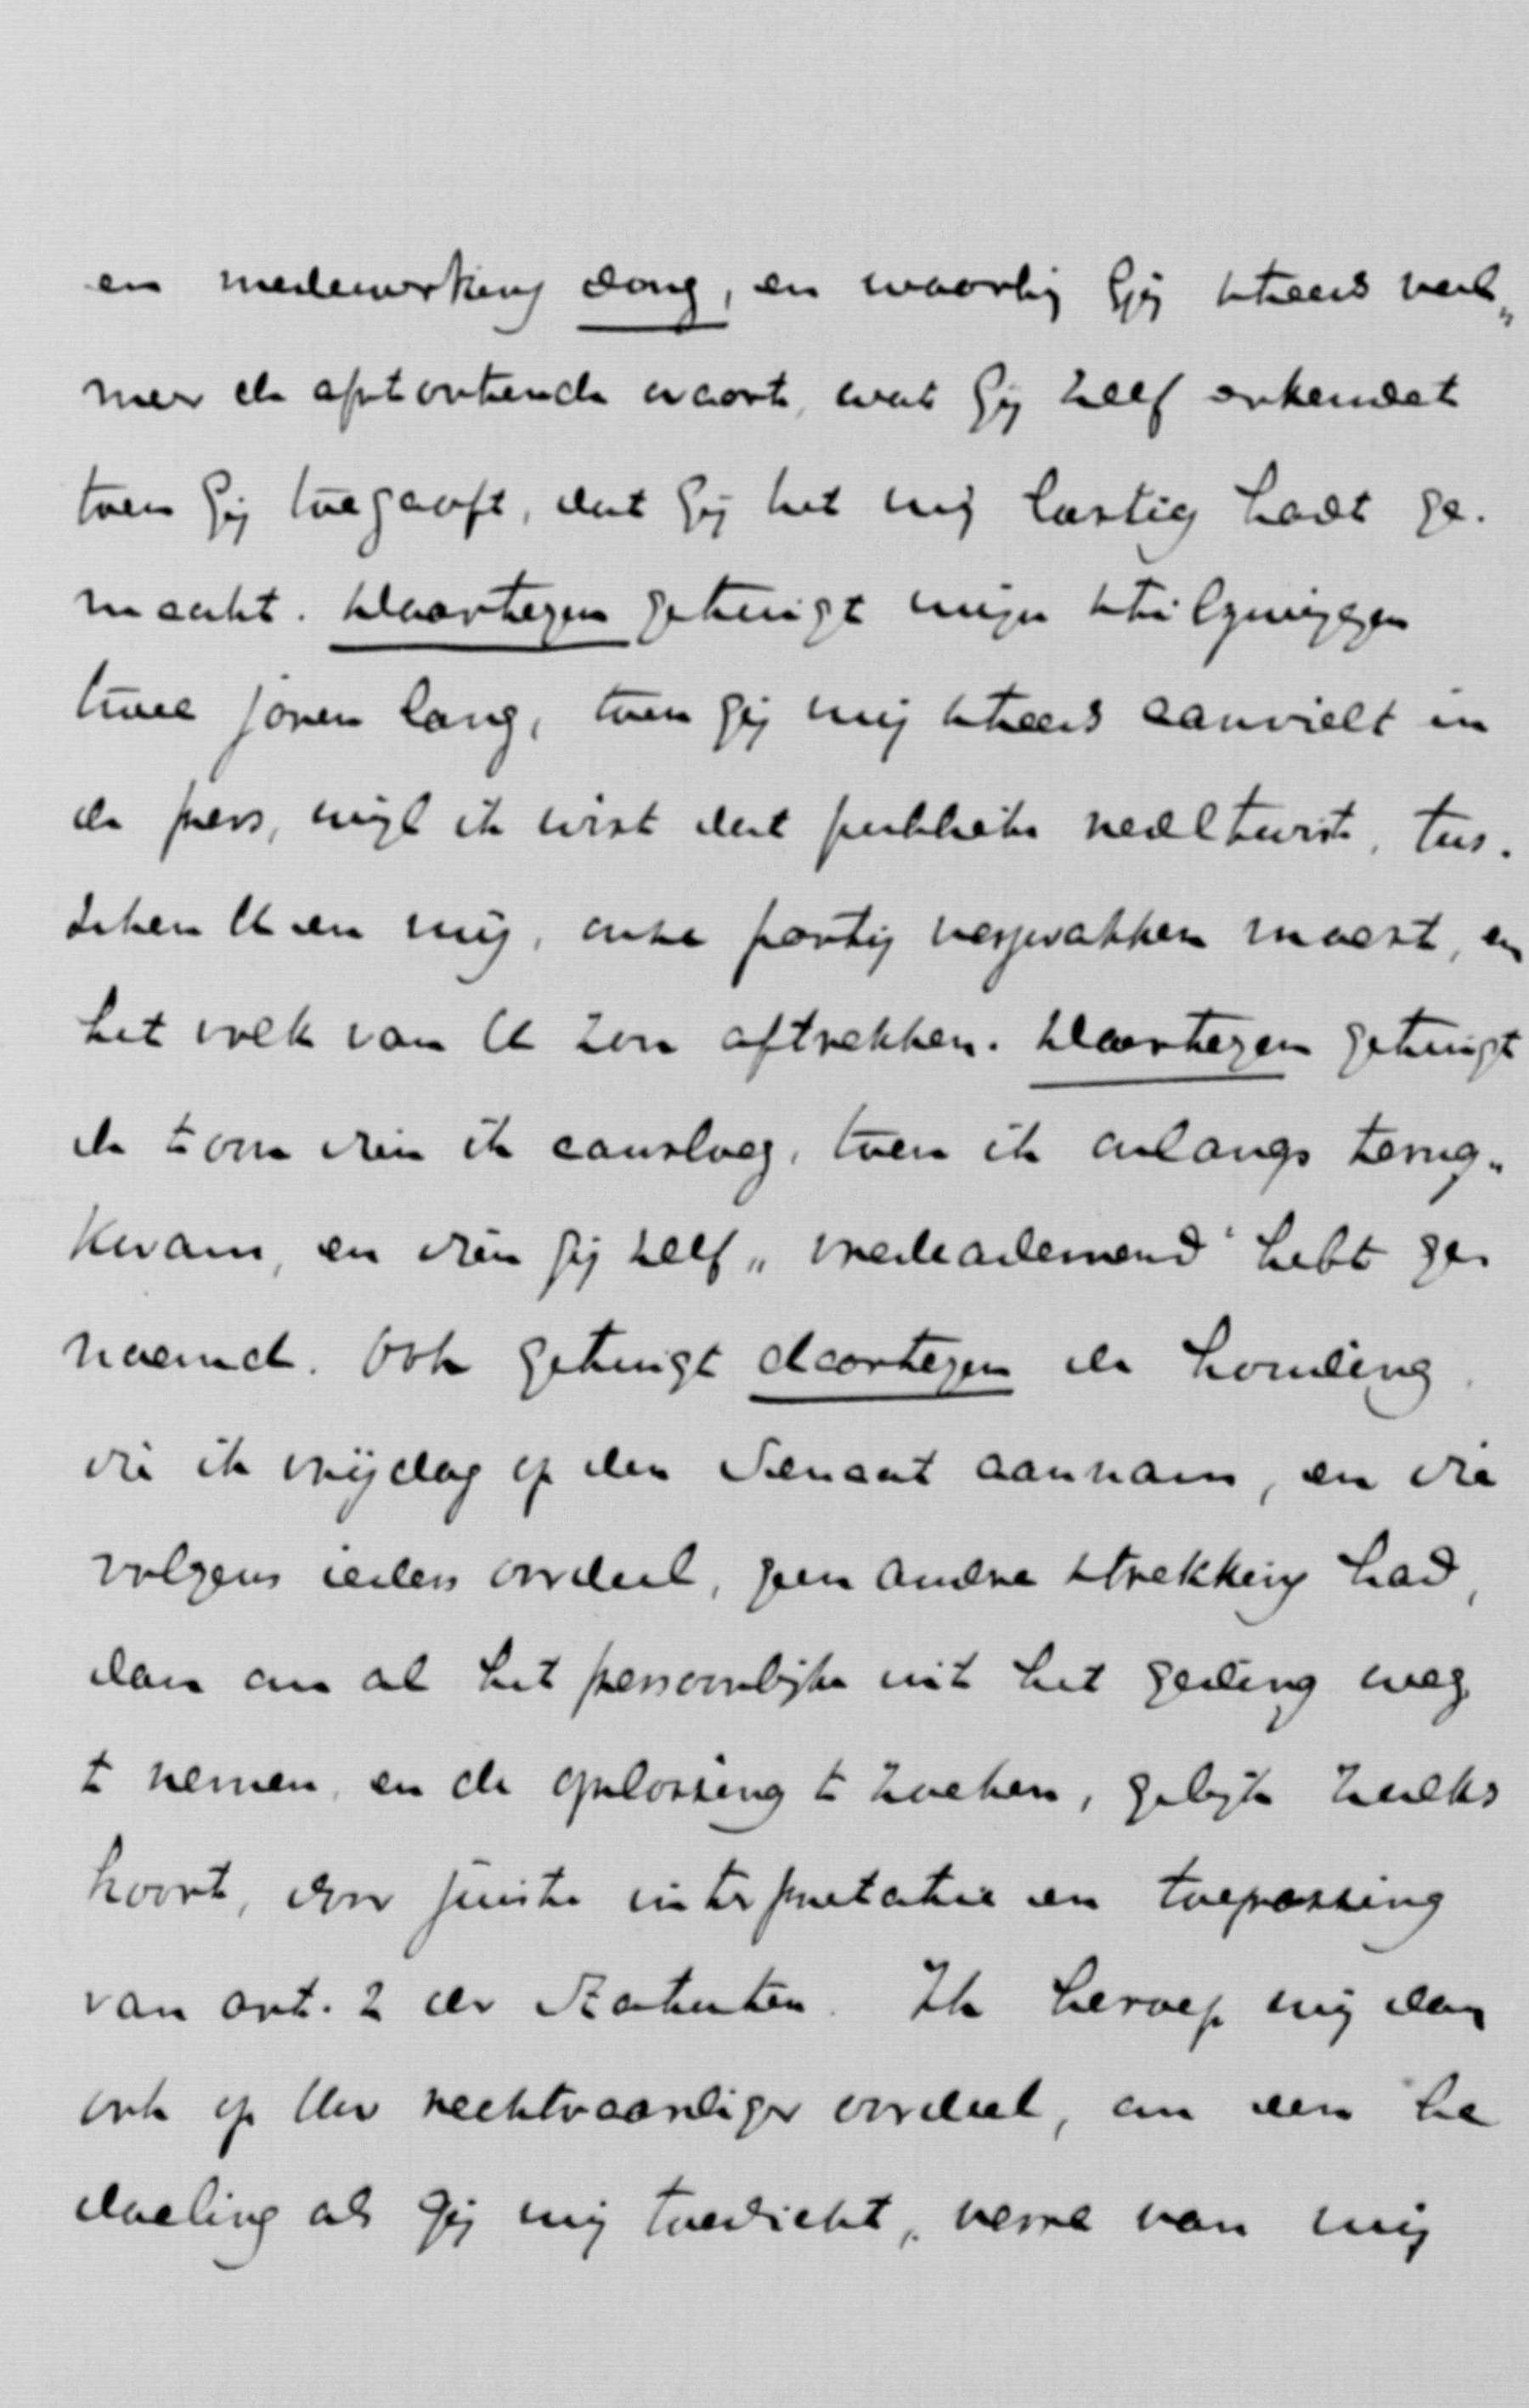 en medewerking dong, en waarlijk Gij steeds veel„
meer de afstootende waart, wat Gij zelf erkendet
toen Gij toegaaft, dat Gij het mij lastig hadt ge-
maakt. Daartegen getuigt mijn stilzwijgen
twee jaren lang, toen Gij mij steeds aanvielt in
de pers, wijl ik wist dat publieke veeltwist, tus-
schen U en mij, onze partij verzwakken moest, en
het volk van U zou aftrekken. Daartegen getuigt
de toon dien ik aansloeg, toen ik onlangs terug„
kwam, en dien Gij zelf „vredeademend" hebt ge-
noemd. Ook getuigt daartegen de houding
die ik vrijdag op den Senaat aannam, en die
volgens ieders oordeel, geen andre strekking had,
dan om al het persoonlijke uit het geding weg
te nemen, en de oplossing te zoeken, gelijk zulks
hoort, door juiste interpretatie en toepassing
van art. 2 der Statuten. Ik beroep mij dan
ook op Uw rechtvaardiger oordeel, om een be
doeling als Gij mij toedicht, verre van mij